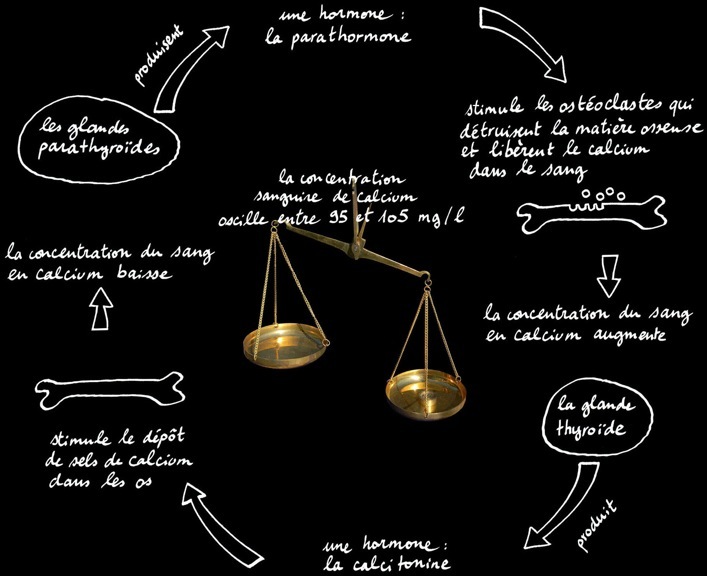 une hormone :
la parathormone
produisent
les glandes
parathyroïdes
stimule les ostéoclastes qui
détruisent la matière osseuse
et libèrent le calcium
dans le sang
la concentration
sanguire de calcium
oscille entre 95 et 105 mg/l
la concentration du sang
en calcium baisse
la concentration du sang
en calcium augmente
la glande
thyroïde
stimule le dépôt
de sels de calcium
dans les os
produit
une hormone :
la calcitonine